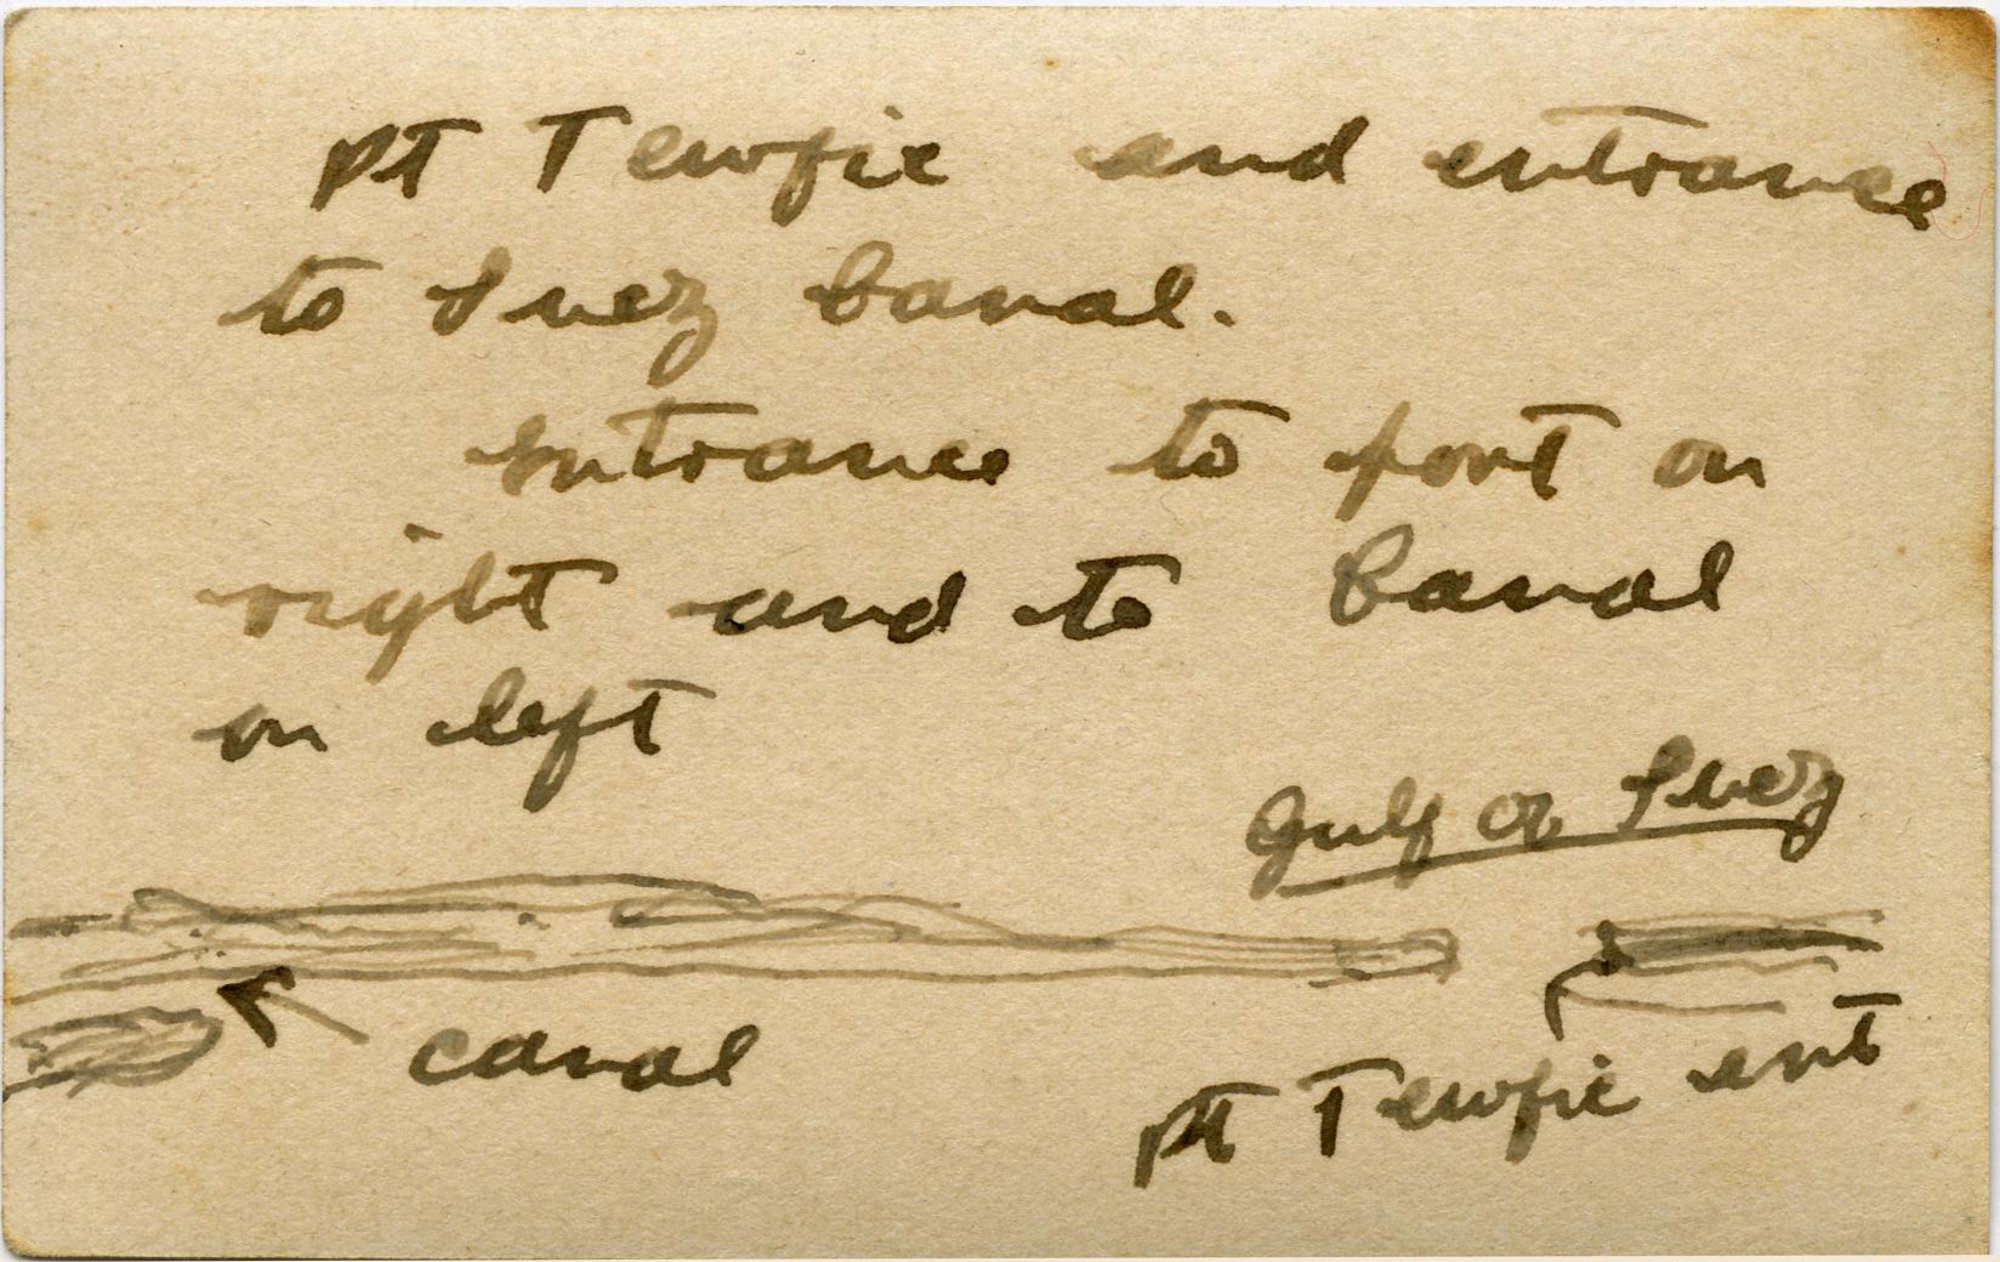 Pt Tewfic and entrance
to Suez Canal.
Entrance to port on
right and to Canal
on left
Gulf of Suez
canal
Pt Tewfic ent